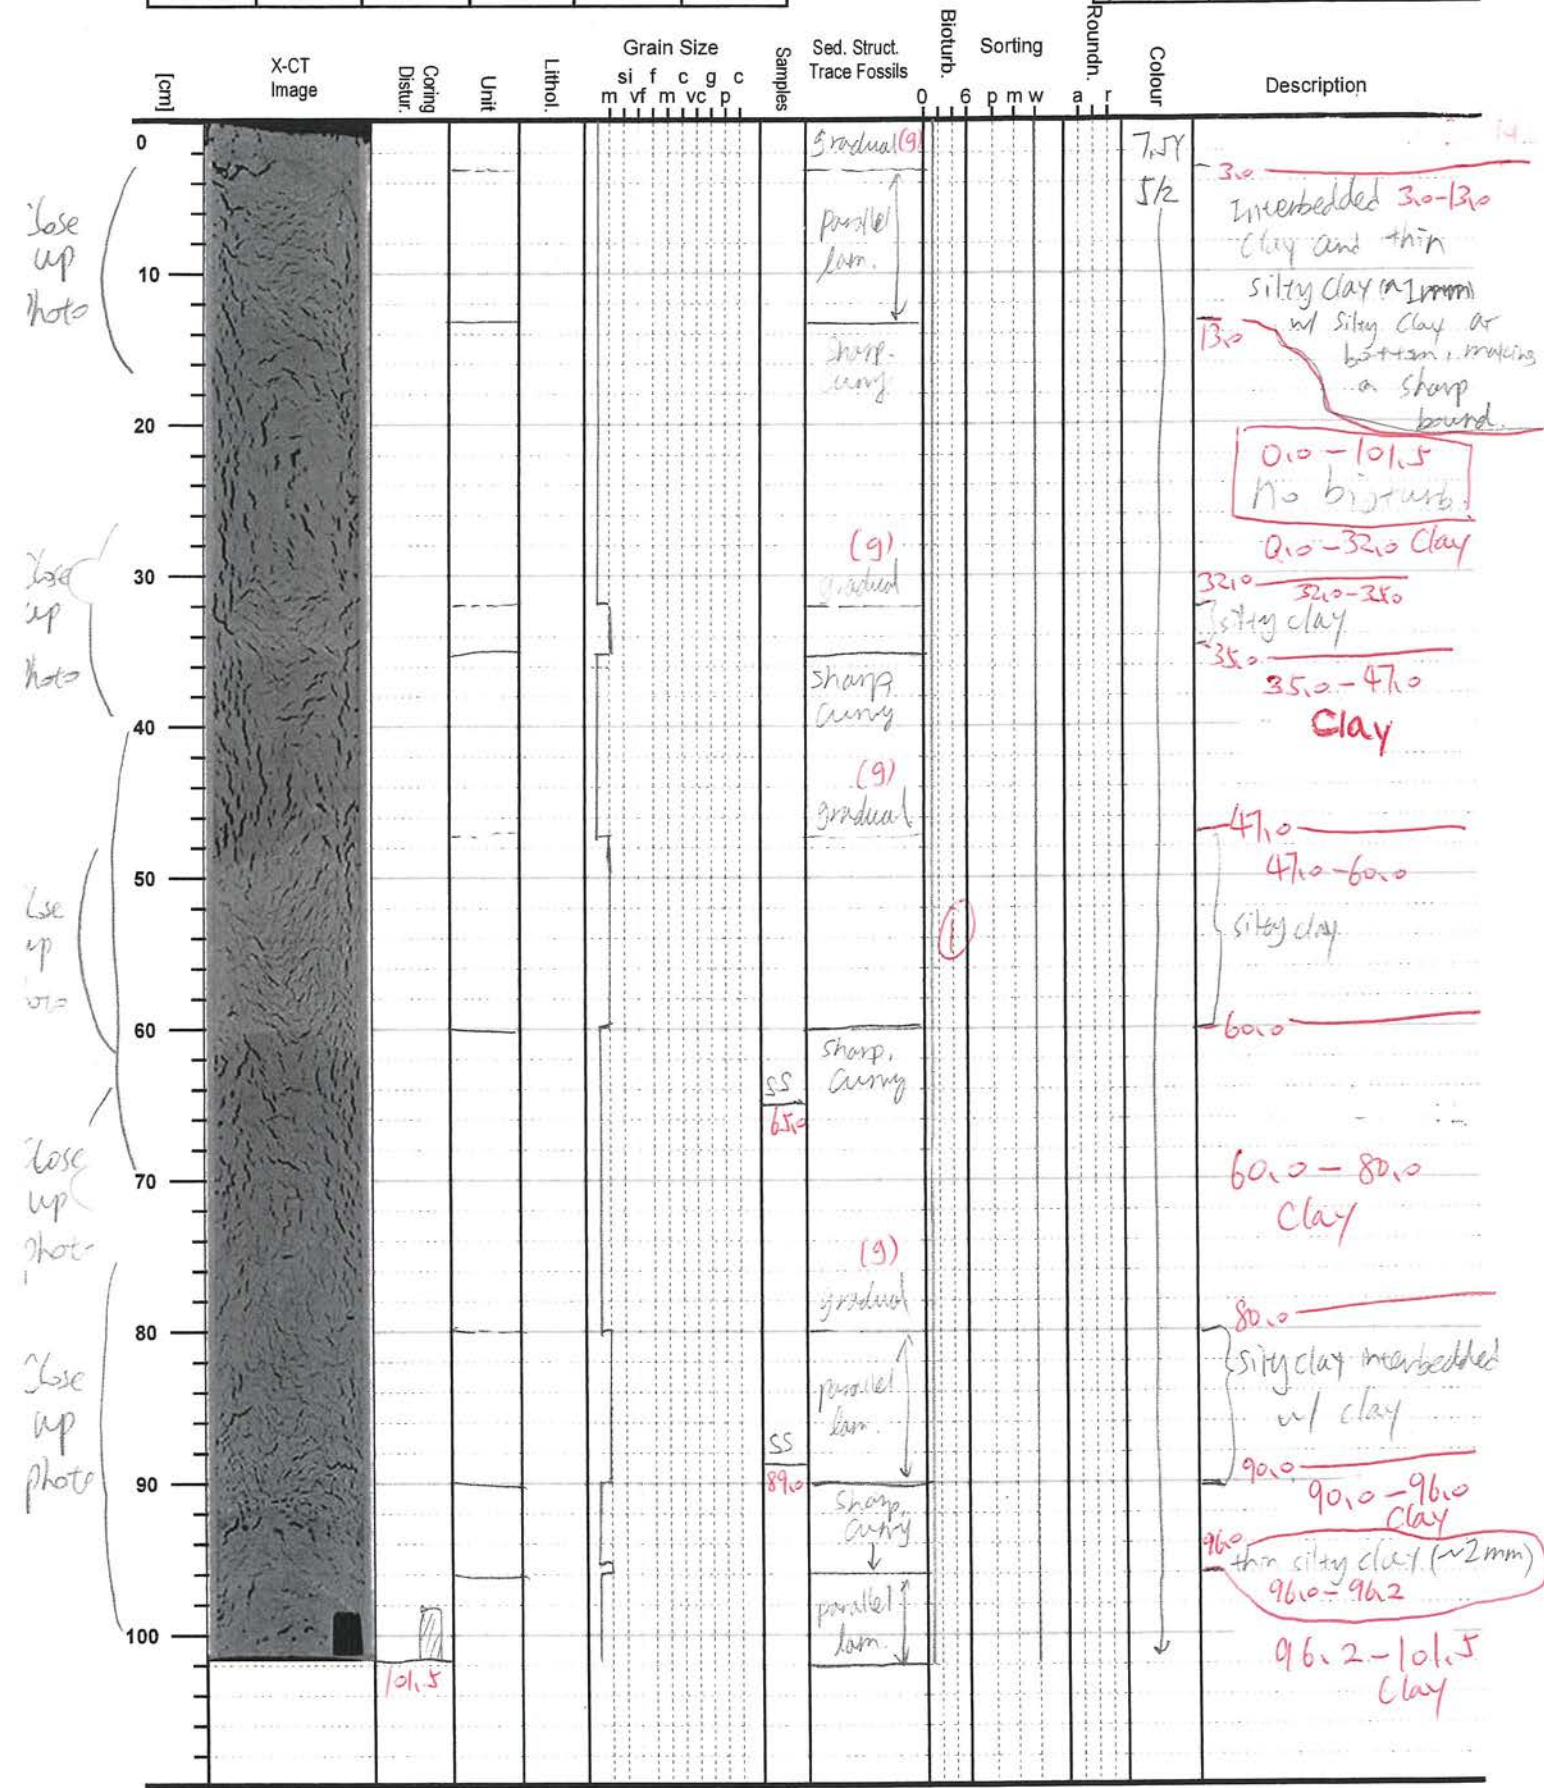 [cm]
X-CT
Image
Coring
Distur.
Unit
Lithol.
Grain Size
si f c g c
m vf m vc p
Samples
Sed. Struct.
Trace Fossils
Bioturb.
0 6
Sorting
p m w
Roundn.
a r
Colour
Description
0
10
20
30
40
50
60
70
80
90
100
Close
up
photo
Close
up
photo
Close
up
Close
up
photo
Close
up
photo
101.5
SS
65.0
SS
89.0
gradual (g)
parallel
lam.
Sharp.
curvy
(g)
gradual
Sharp
curvy
(g)
gradual
Sharp.
curvy
(g)
gradual
parallel
lam.
Sharp.
curvy
parallel
lam.
7.5Y
5/2
3.0
Interbedded 3.0-13.0
Clay and thin
silty clay (~1mm)
13.0
w/ Silty Clay at
bottom, making
a sharp
bound.
0.0-101.5
No bioturb.
0.0-32.0 Clay
32.0
32.0-35.0
silty clay
35.0
35.0-47.0
Clay
47.0
47.0-60.0
silty clay
60.0
60.0-80.0
Clay
80.0
silty clay interbedded
w/ clay
90.0
90.0-96.0
Clay
96.0
thin silty clay (~2mm)
96.0-96.2
96.2-101.5
Clay